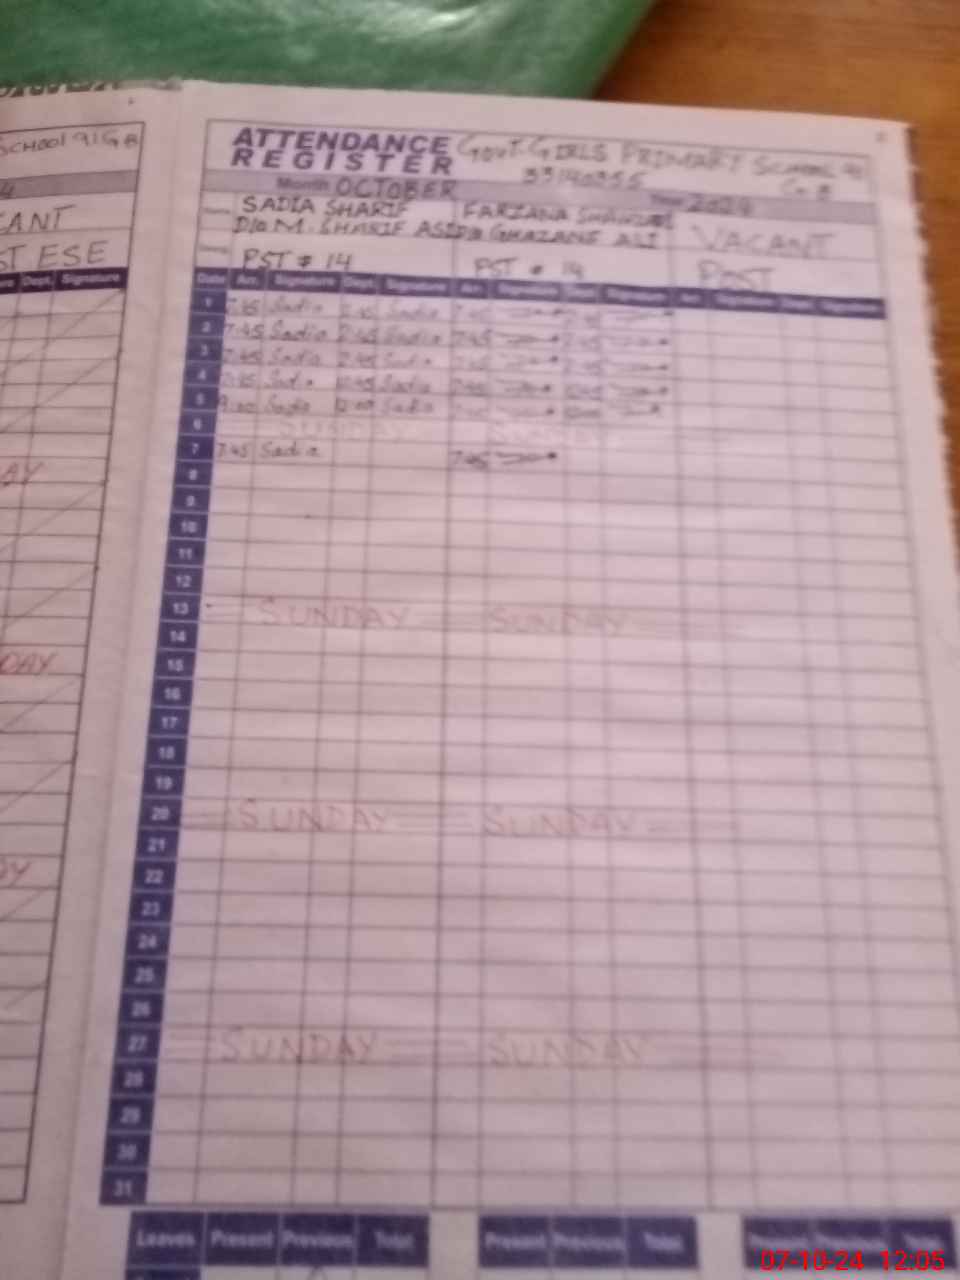 SCHOOL 91GB
ATTENDANCE REGISTER
GOVT. GIRLS PRIMARY SCHOOL 91
G.B
Month OCTOBER 2024
SADIA SHARIF FARZANA VACANT
D/O M. SHARIF GHAZANF ALI
PST # 14 PST # 14 POST
ESE
Signature
Date Arr. Signature Dept. Signature Arr. Signature Dept. Signature Arr. Signature Dept. Signature
1 7:45 Sadia 2:45 Sadia 7:45 2:45
2 7:45 Sadia 2:45 Sadia 7:45 2:45
3 7:45 Sadia 2:45 Sadia 7:45 2:45
4 7:45 Sadia 12:45 Sadia 7:45
5 Sadia 12:00 Sadia
6 SUNDAY SUNDAY
7 7:45 Sadia 7:45
8
9
10
11
12
13 SUNDAY SUNDAY
14
15
16
17
18
19
20 SUNDAY SUNDAY
21
22
23
24
25
26
27 SUNDAY SUNDAY
28
29
30
31
Leaves Present Previous Total Present Previous Total Present Previous Total
07-10-24 12:05